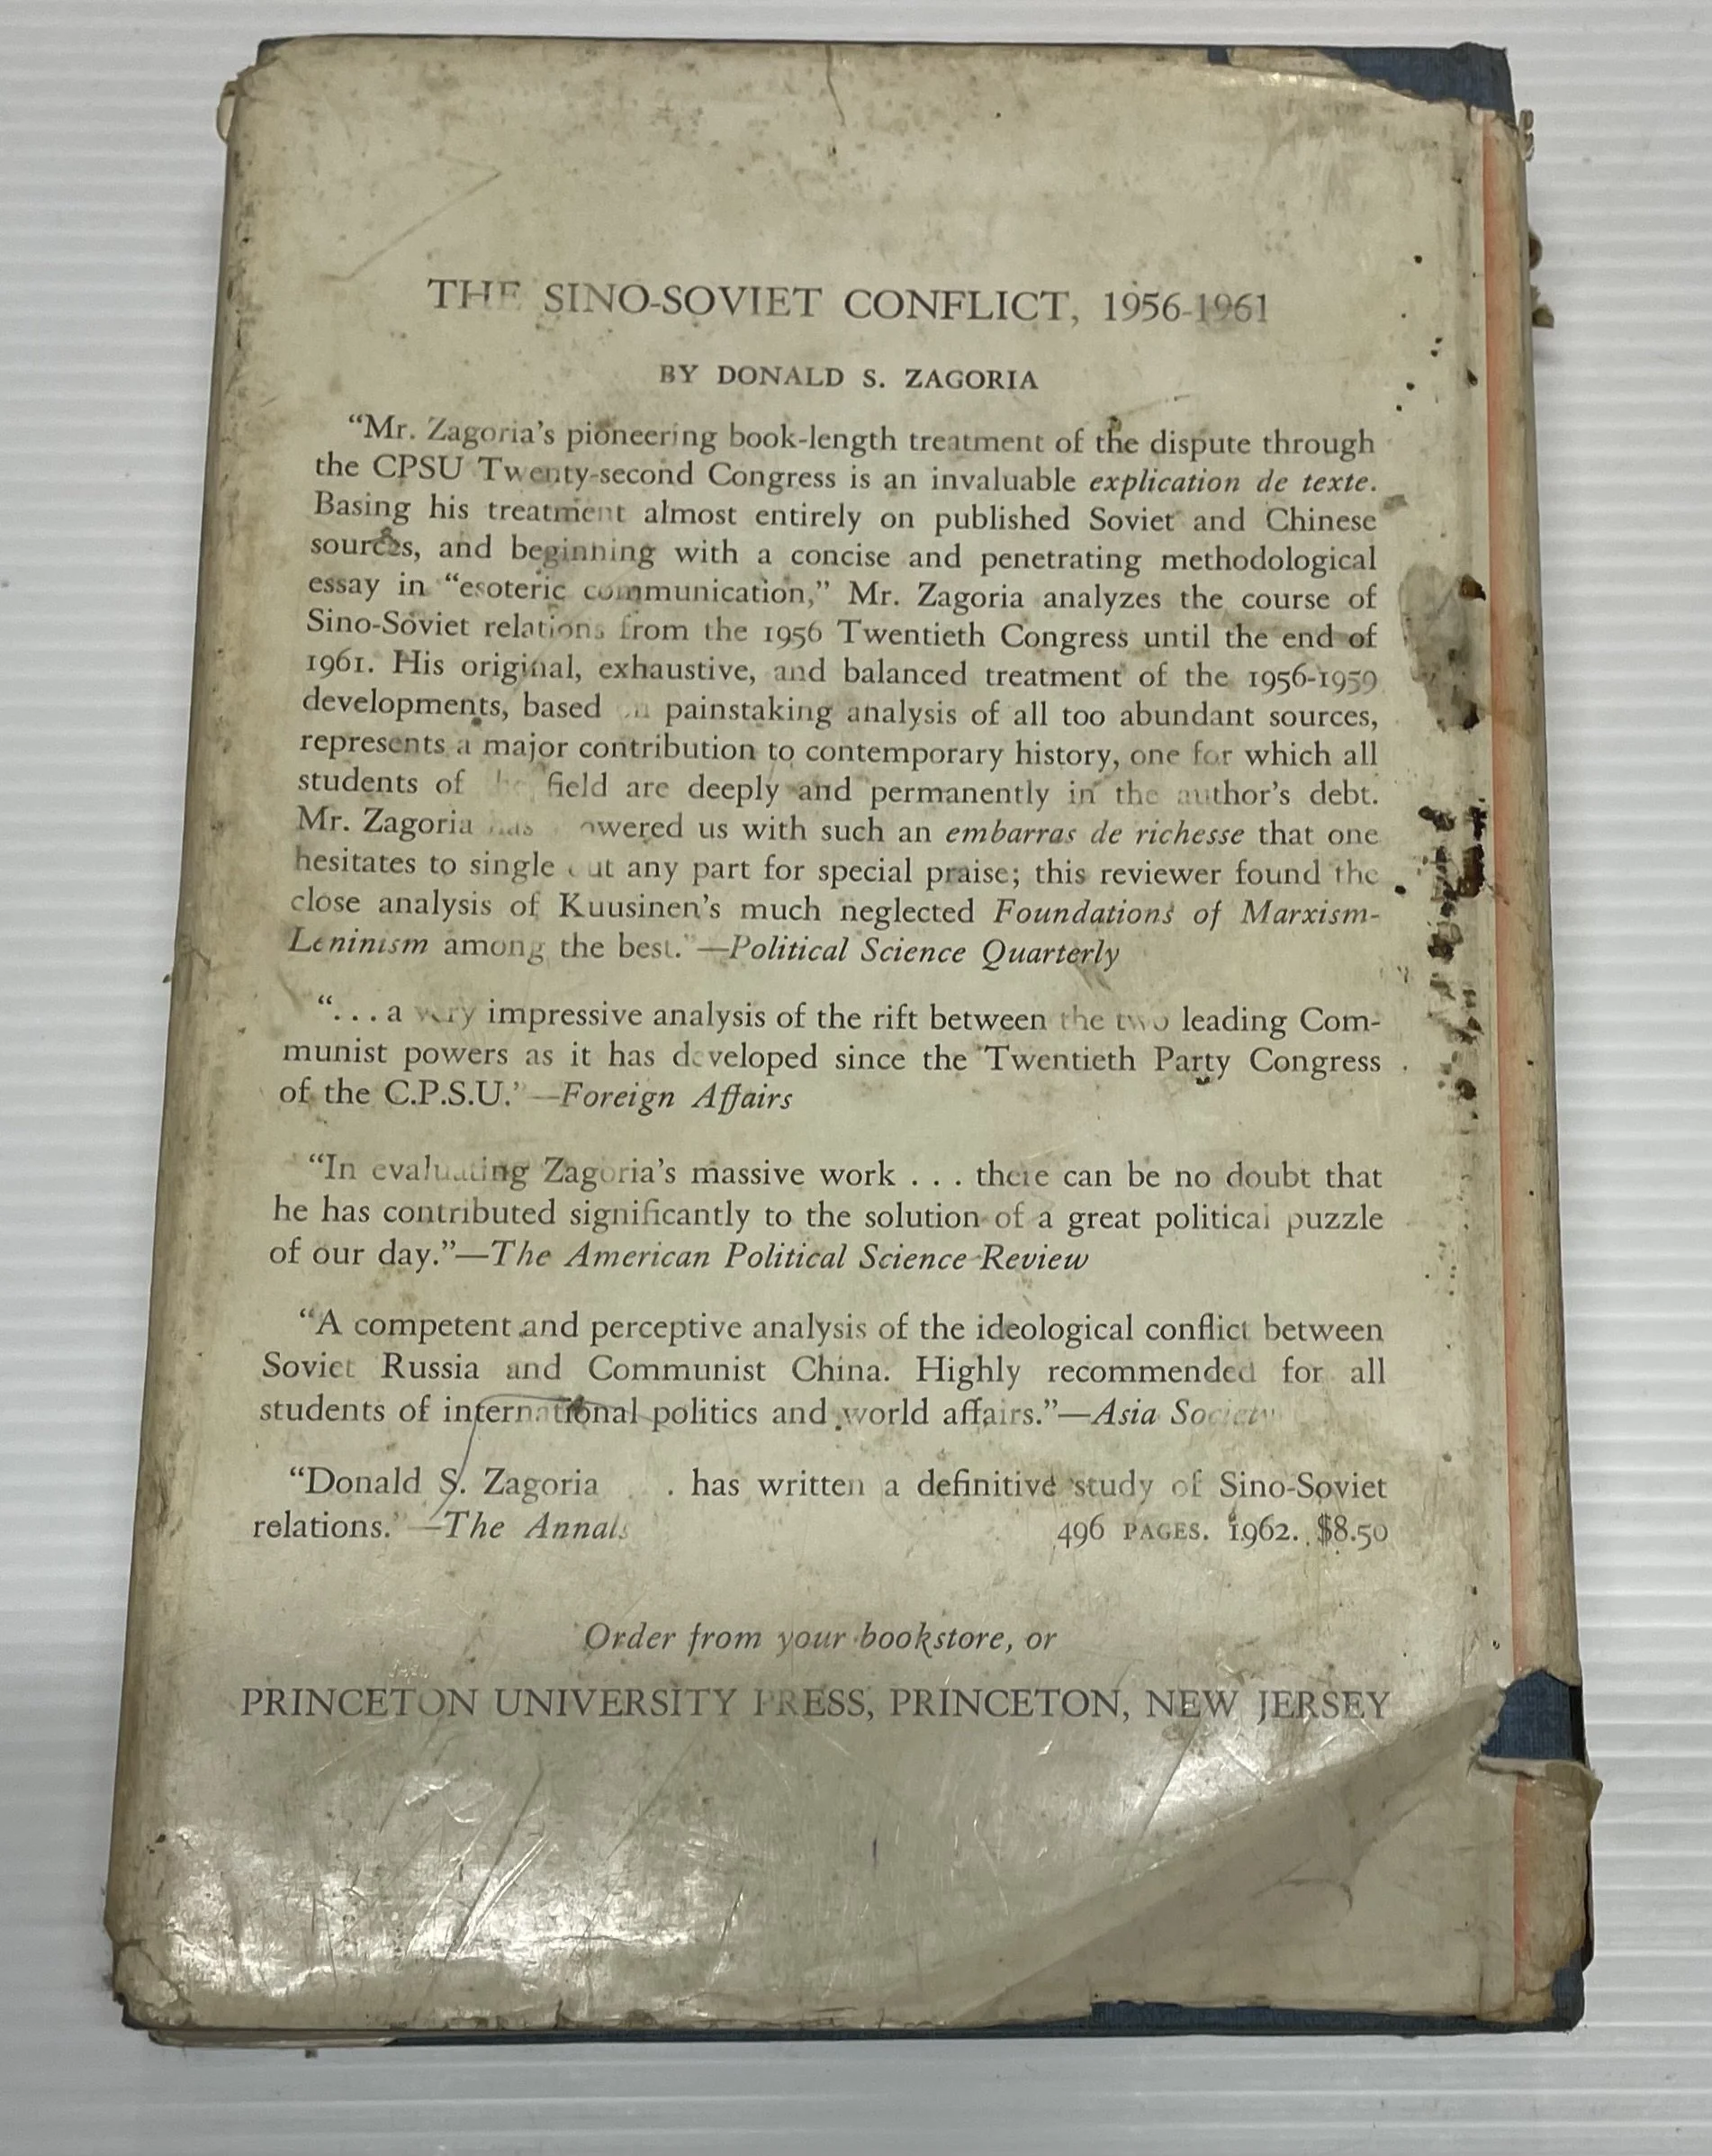 THE SINO-SOVIET CONFLICT, 1956-1961
BY DONALD S. ZAGORIA
“Mr. Zagoria’s pioneering book-length treatment of the dispute through
the CPSU Twenty-second Congress is an invaluable explication de texte.
Basing his treatment almost entirely on published Soviet and Chinese
sources, and beginning with a concise and penetrating methodological
essay in “esoteric communication,” Mr. Zagoria analyzes the course of
Sino-Soviet relations from the 1956 Twentieth Congress until the end of
1961. His original, exhaustive, and balanced treatment of the 1956-1959
developments, based on painstaking analysis of all too abundant sources,
represents a major contribution to contemporary history, one for which all
students of the field are deeply and permanently in the author’s debt.
Mr. Zagoria has us with such an embarras de richesse that one
hesitates to single out any part for special praise; this reviewer found the
close analysis of Kuusinen’s much neglected Foundations of Marxism-
Leninism among the best.”—Political Science Quarterly
“. . . a very impressive analysis of the rift between the two leading Com-
munist powers as it has developed since the Twentieth Party Congress
of the C.P.S.U.”—Foreign Affairs
“In evaluating Zagoria’s massive work . . . there can be no doubt that
he has contributed significantly to the solution of a great political puzzle
of our day.”—The American Political Science Review
“A competent and perceptive analysis of the ideological conflict between
Soviet Russia and Communist China. Highly recommended for all
students of international politics and world affairs.”—Asia Society
“Donald S. Zagoria . has written a definitive study of Sino-Soviet
relations.”—The Annals 496 PAGES. 1962. $8.50
Order from your bookstore, or
PRINCETON UNIVERSITY PRESS, PRINCETON, NEW JERSEY